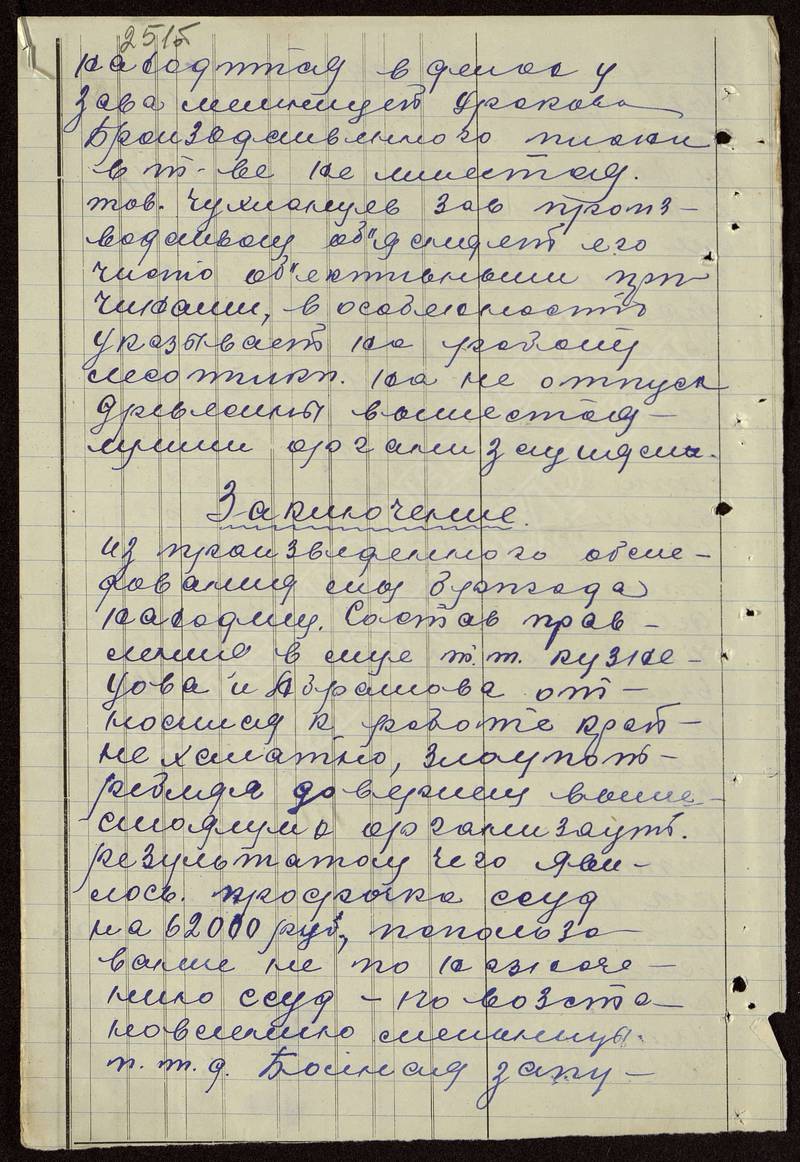 251б
находится в делах у
зава мельницей
Производственного плана
в т-ве не имеется.
тов. Чухланцев зав произ-
водством об"ясняет его
чисто об"ективными при-
чинами, в особенности
указывает на
на не отпуск
древесины вышестоя-
щими организациями.
Заключение.
из произведенного обсле-
дования сту бригада
находит. Состав прав-
ления в лице т.т. Кузне-
цова и Абрамова от-
носился к работе край-
не халатно, злоупот-
ребляя доверием выше-
стоящих организаций.
результатом чего яви-
лось. просрочка ссуд
на 62000 руб., использо-
вание не по назначе-
нию ссуд - по возста-
новлению мельницы.
и. т. д. Полная запу-